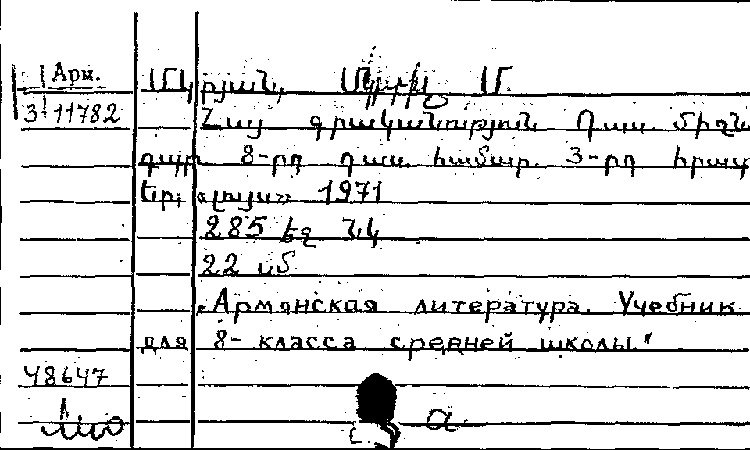 Арм.
З-11782
Մկրյան, Մկրտիչ Մ.
Հայ գրականություն Դաս. միջն.
դպր. 8-րդ դաս. համար. 3-րդ հրատ
Եր., «Լույս» 1971
285 էջ նկ
22 սմ
„Армянская литература. Учебник
для 8- класса средней школы."
48647
а